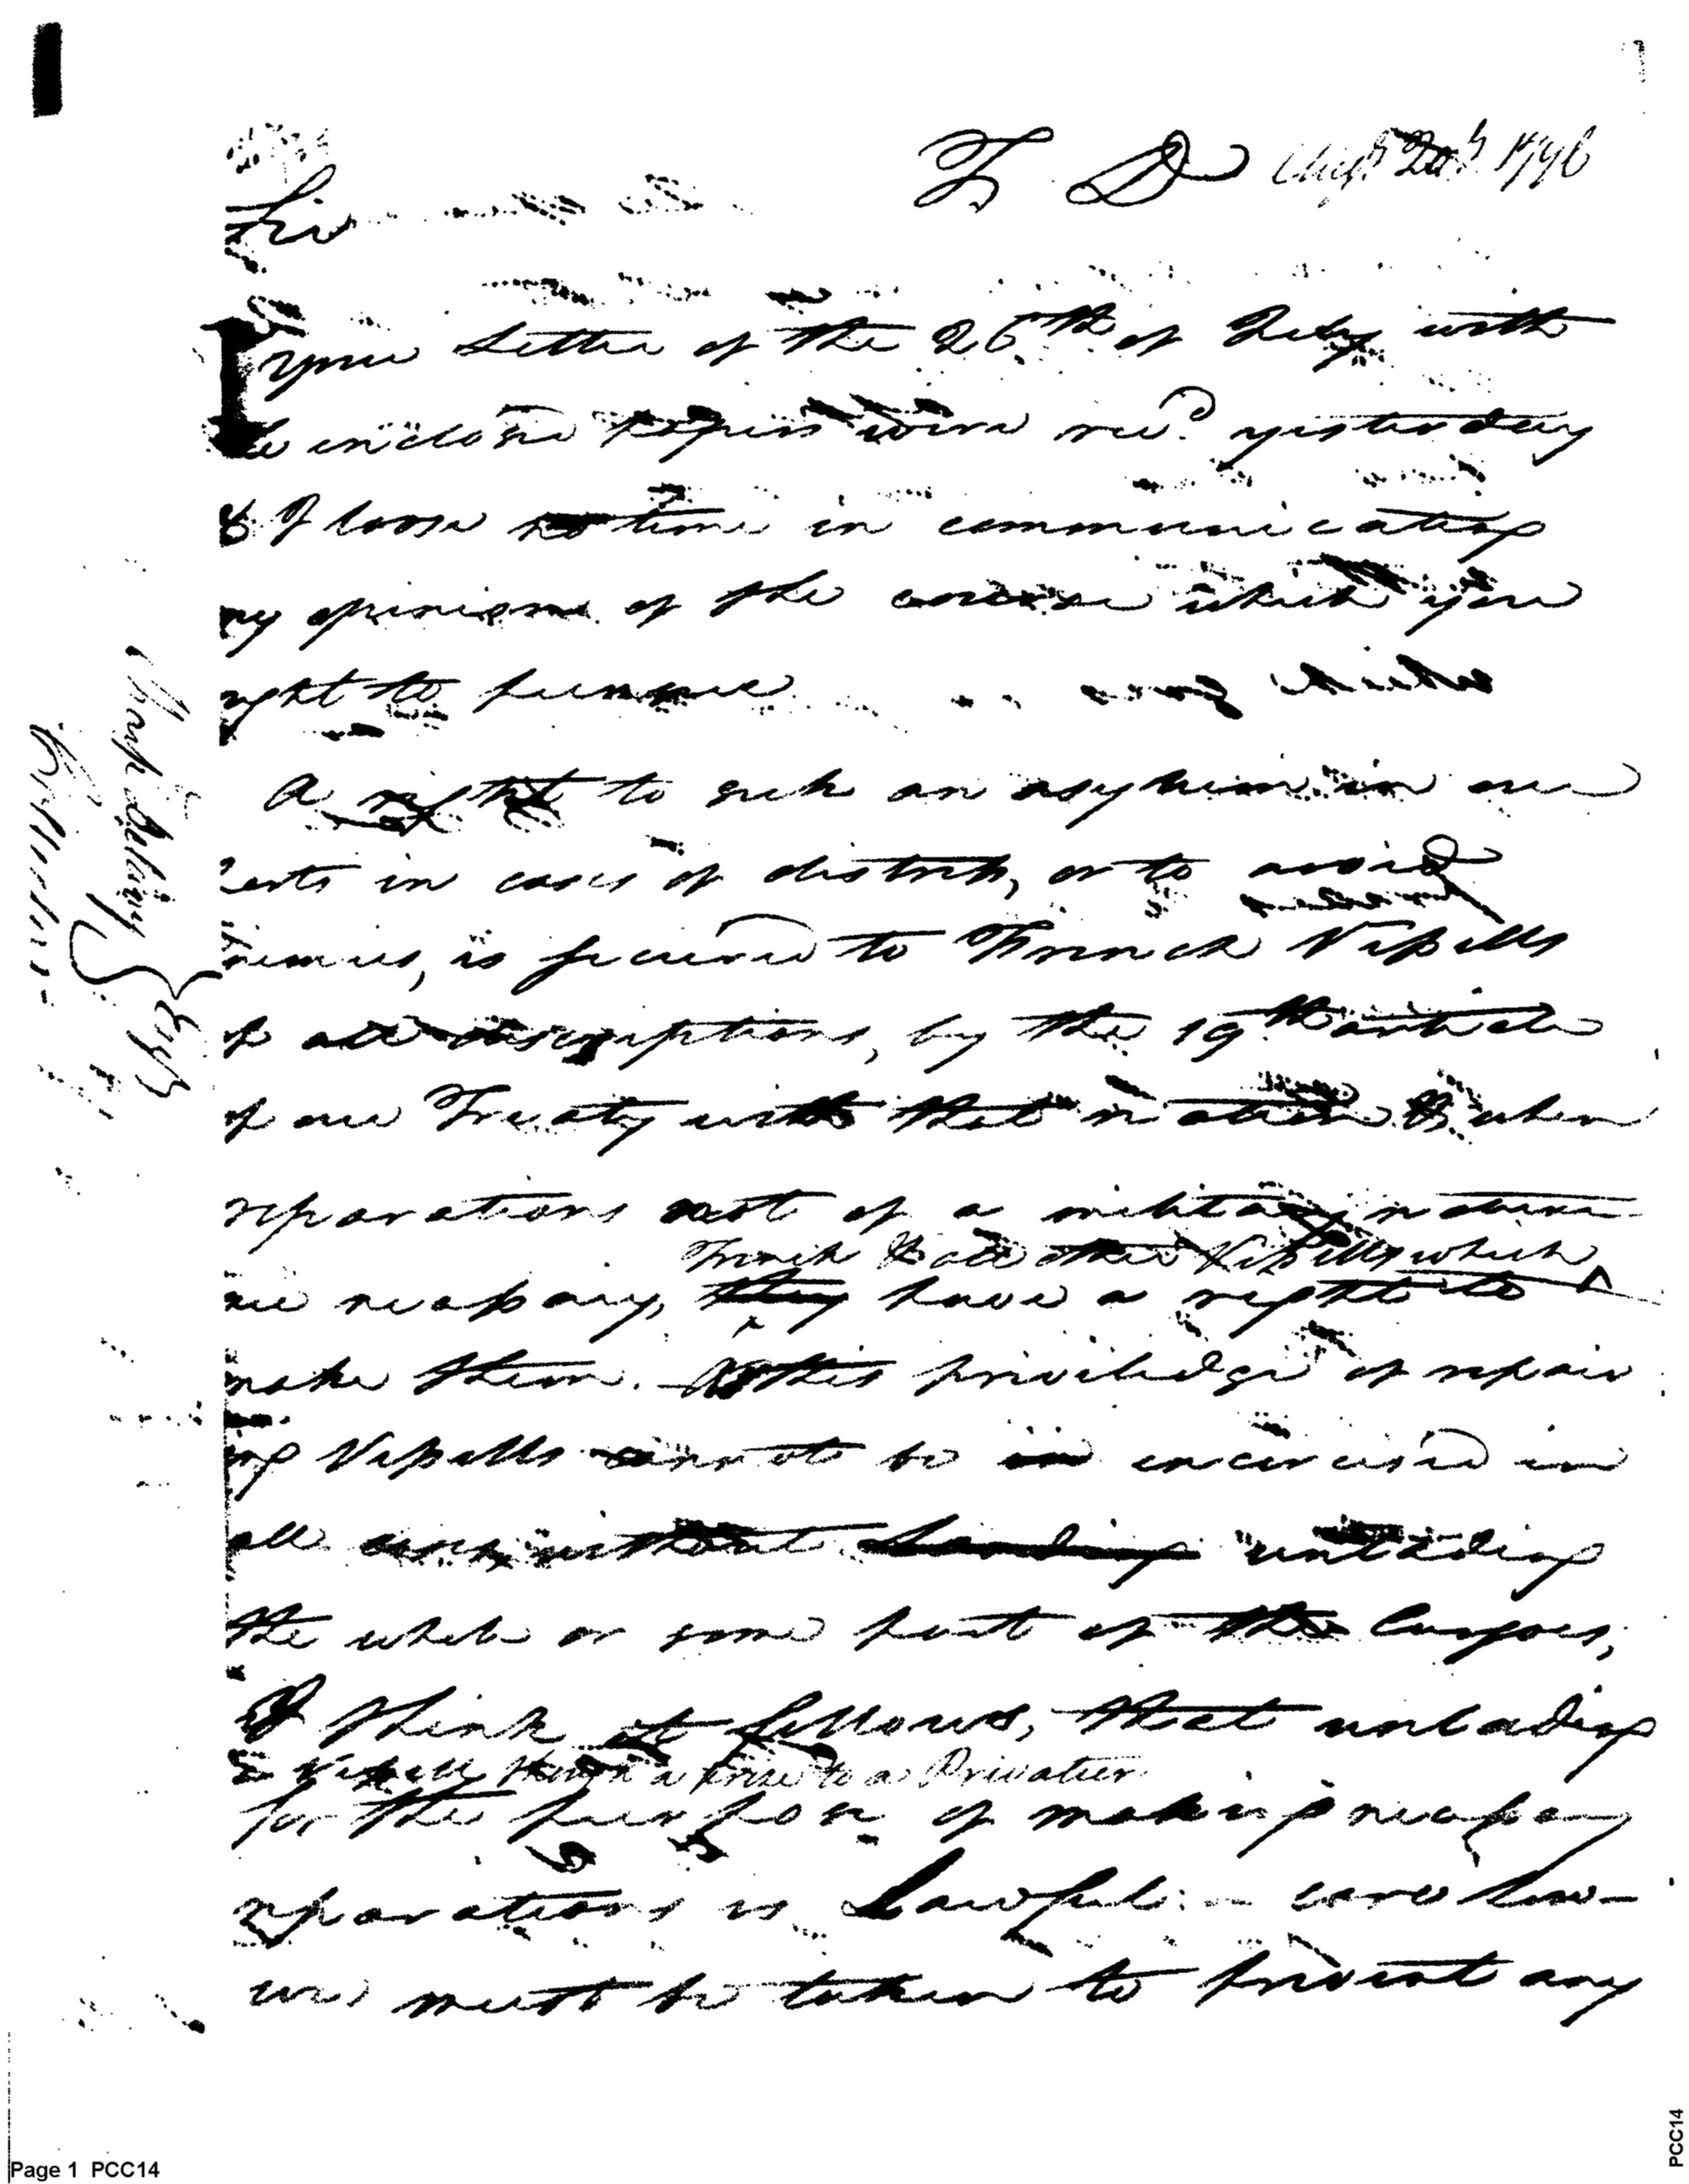 T D Augt 20th 1796
Sir
your Letter of the 26th of July with
he inclosed papers were recd yesterday
& I loose no time in communicating
my opinion of the course which you
ought to pursue
A right to seek an asylum in our
Ports in cases of distress, or to avoid
Enemies, is secured to French Vessells
of all descriptions, by the 19th article
of our Treaty with that nation & when
reparations not of a military nature
French & all other Vessells which
are necessary, they have a right to
make them. As this priviledge of repair
ing Vessells cannot be in excercised in
all cases without Landing unlading
the whole or some part of the Cargoes,
I think it follows, that unlading
a Vessell though a Prize to a Privatier
for the purpose of making necessary
reparations is Lawful: - care how-
ever must be taken to prevent any
Sharp Delany Esqr
Collector
Page 1 PCC14
PCC14